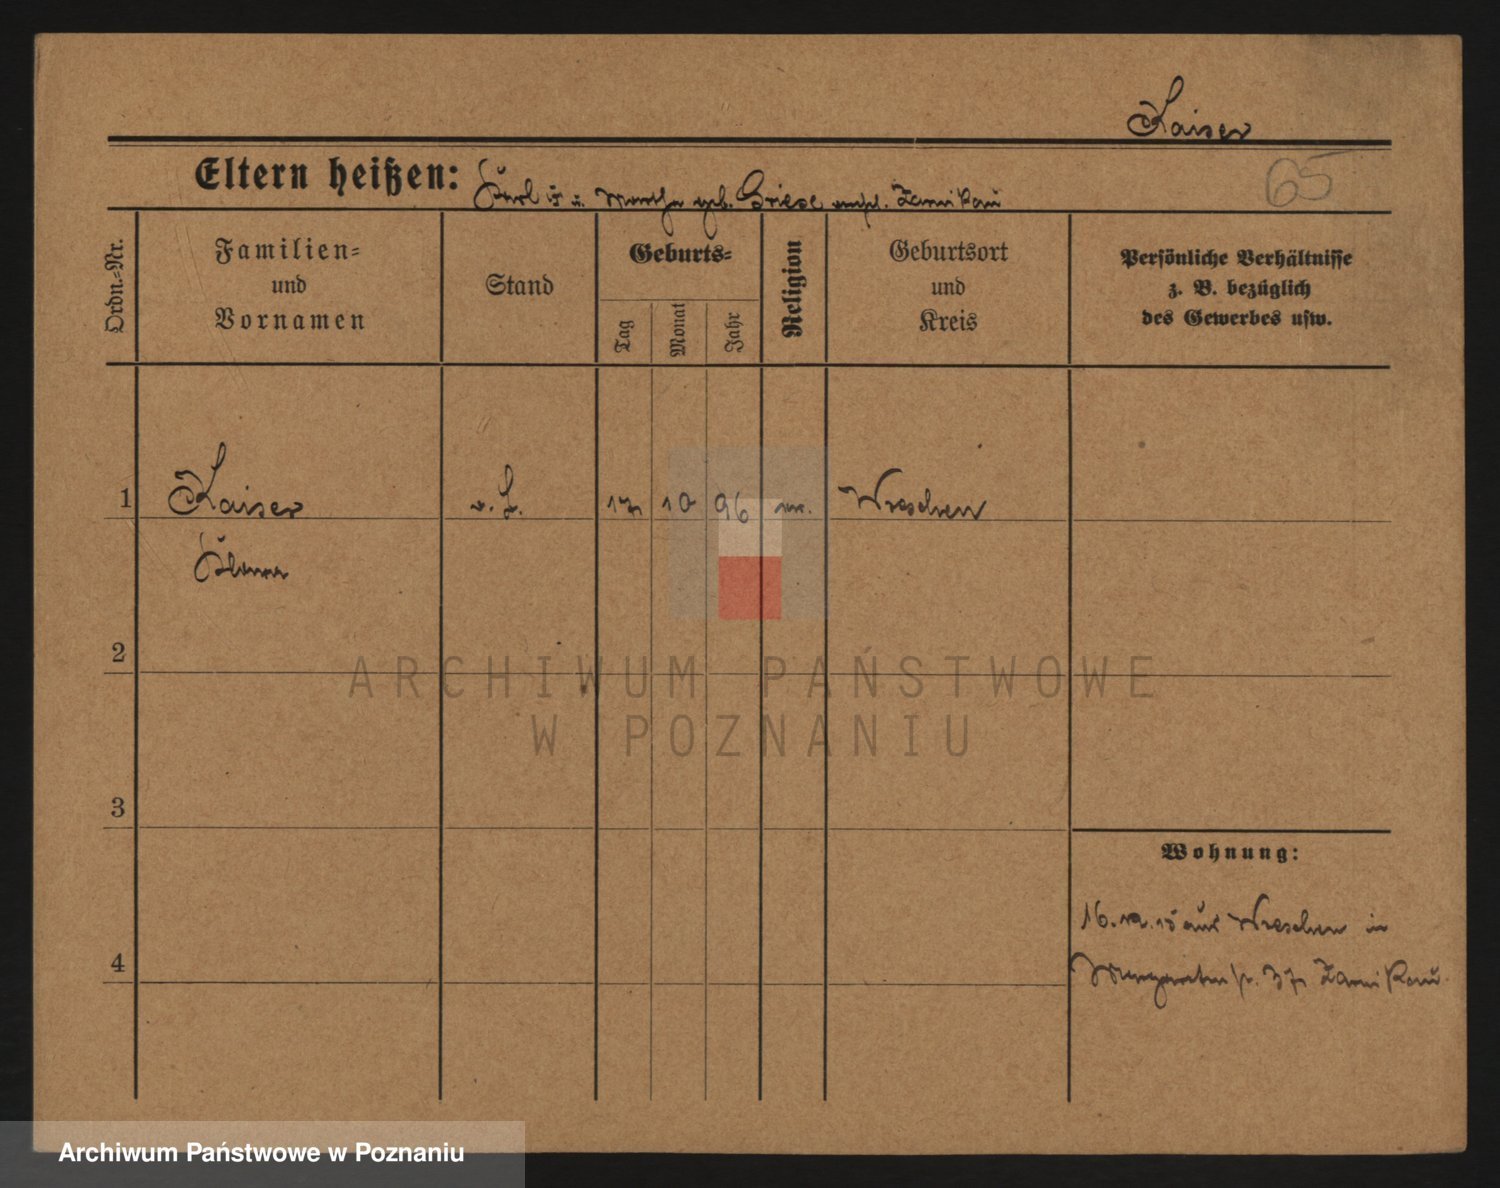 Kaiser
65
Eltern heißen: Karl u. Martha geb. Griese
Ordn.=Nr.
Familien=
und
Vornamen
Stand
Geburts=
Tag
Monat
Jahr
Religion
Geburtsort
und
Kreis
Persönliche Verhältnisse
z. B. bezüglich
des Gewerbes usw.
1
Kaiser
17 10 96
Wreschen
2
ARCHIWUM PAŃSTWOWE
W POZNANIU
3
Wohnung:
16. aus Wreschen in
4
37
Archiwum Państwowe w Poznaniu